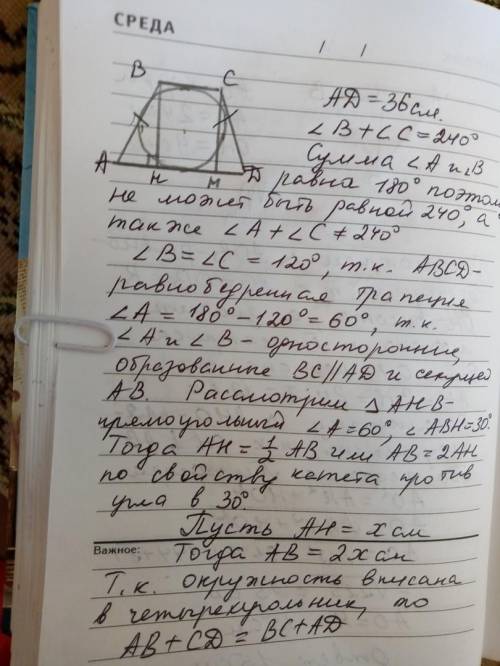 СРЕДА
B C
A H M D
AD = 36 см.
∠B + ∠C = 240°
Сумма ∠A и ∠B
равна 180° поэтом
не может быть равной 240°, а
также ∠A + ∠C ≠ 240°
∠B = ∠C = 120°, т.к. ABCD-
равнобедренная трапеция
∠A = 180° - 120° = 60°, т.к.
∠A и ∠B - односторонние,
образованные BC∥AD и секущей
AB. Рассмотрим △AHB-
прямоугольный ∠A=60°, ∠ABH=30°
Тогда AH = ½ AB или AB = 2AH
по свойству катета против
угла в 30°.
Пусть AH = x см
Важное: Тогда AB = 2x см
Т.к. окружность вписана
в четырехугольник, то
AB + CD = BC + AD